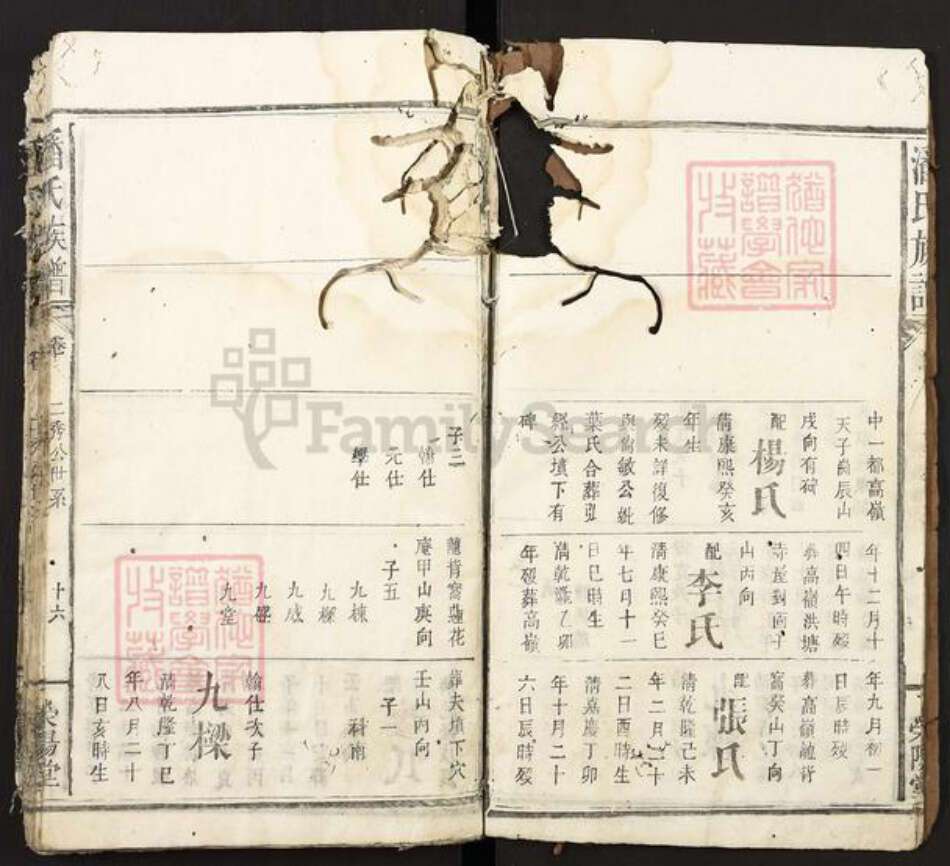 潘氏族譜
中一都高嶺
天子崗辰山
戌向有碑
配
楊氏
清康熙癸亥
年生
歿未詳復修
與偹敏公妣
葉氏合葬弘
經公墳下有
碑
年十二月十
四日午時歿
葬高嶺洪塘
山丙向
配
李氏
清康熙癸巳
年七月十一
日巳時生
清乾隆乙卯
年歿葬高嶺
年九月初一
日辰時歿
窩癸山丁向
配
張氏
清乾隆己未
年二月二十
二日酉時生
清嘉慶丁卯
年十月二十
六日辰時歿
子三
元仕
學仕
庵甲山庚向
子五
九棟
九樑
九成
九堂
葬夫墳下穴
壬山丙向
子一
科南
九樑
翰仕次子
清乾隆丁巳
年八月二十
八日亥時生
潘氏族譜
卷
二秀公世系
十六
榮陽堂
FamilySearch